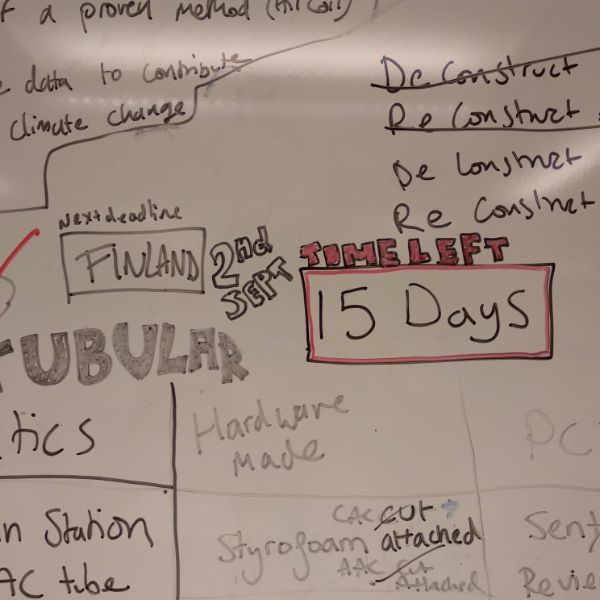 a proven method (Air Coil)
data to contribute
climate change
De Construct
Re Construct
De Construct
Re Construct
Next deadline
FINLAND
2nd SEPT
TIME LEFT
15 Days
TUBULAR
tics
Hardware
Made
PC
n Station
AC tube
CAC CUT
Styrofoam attached
AAC Cut
Attached
Sent
Revie